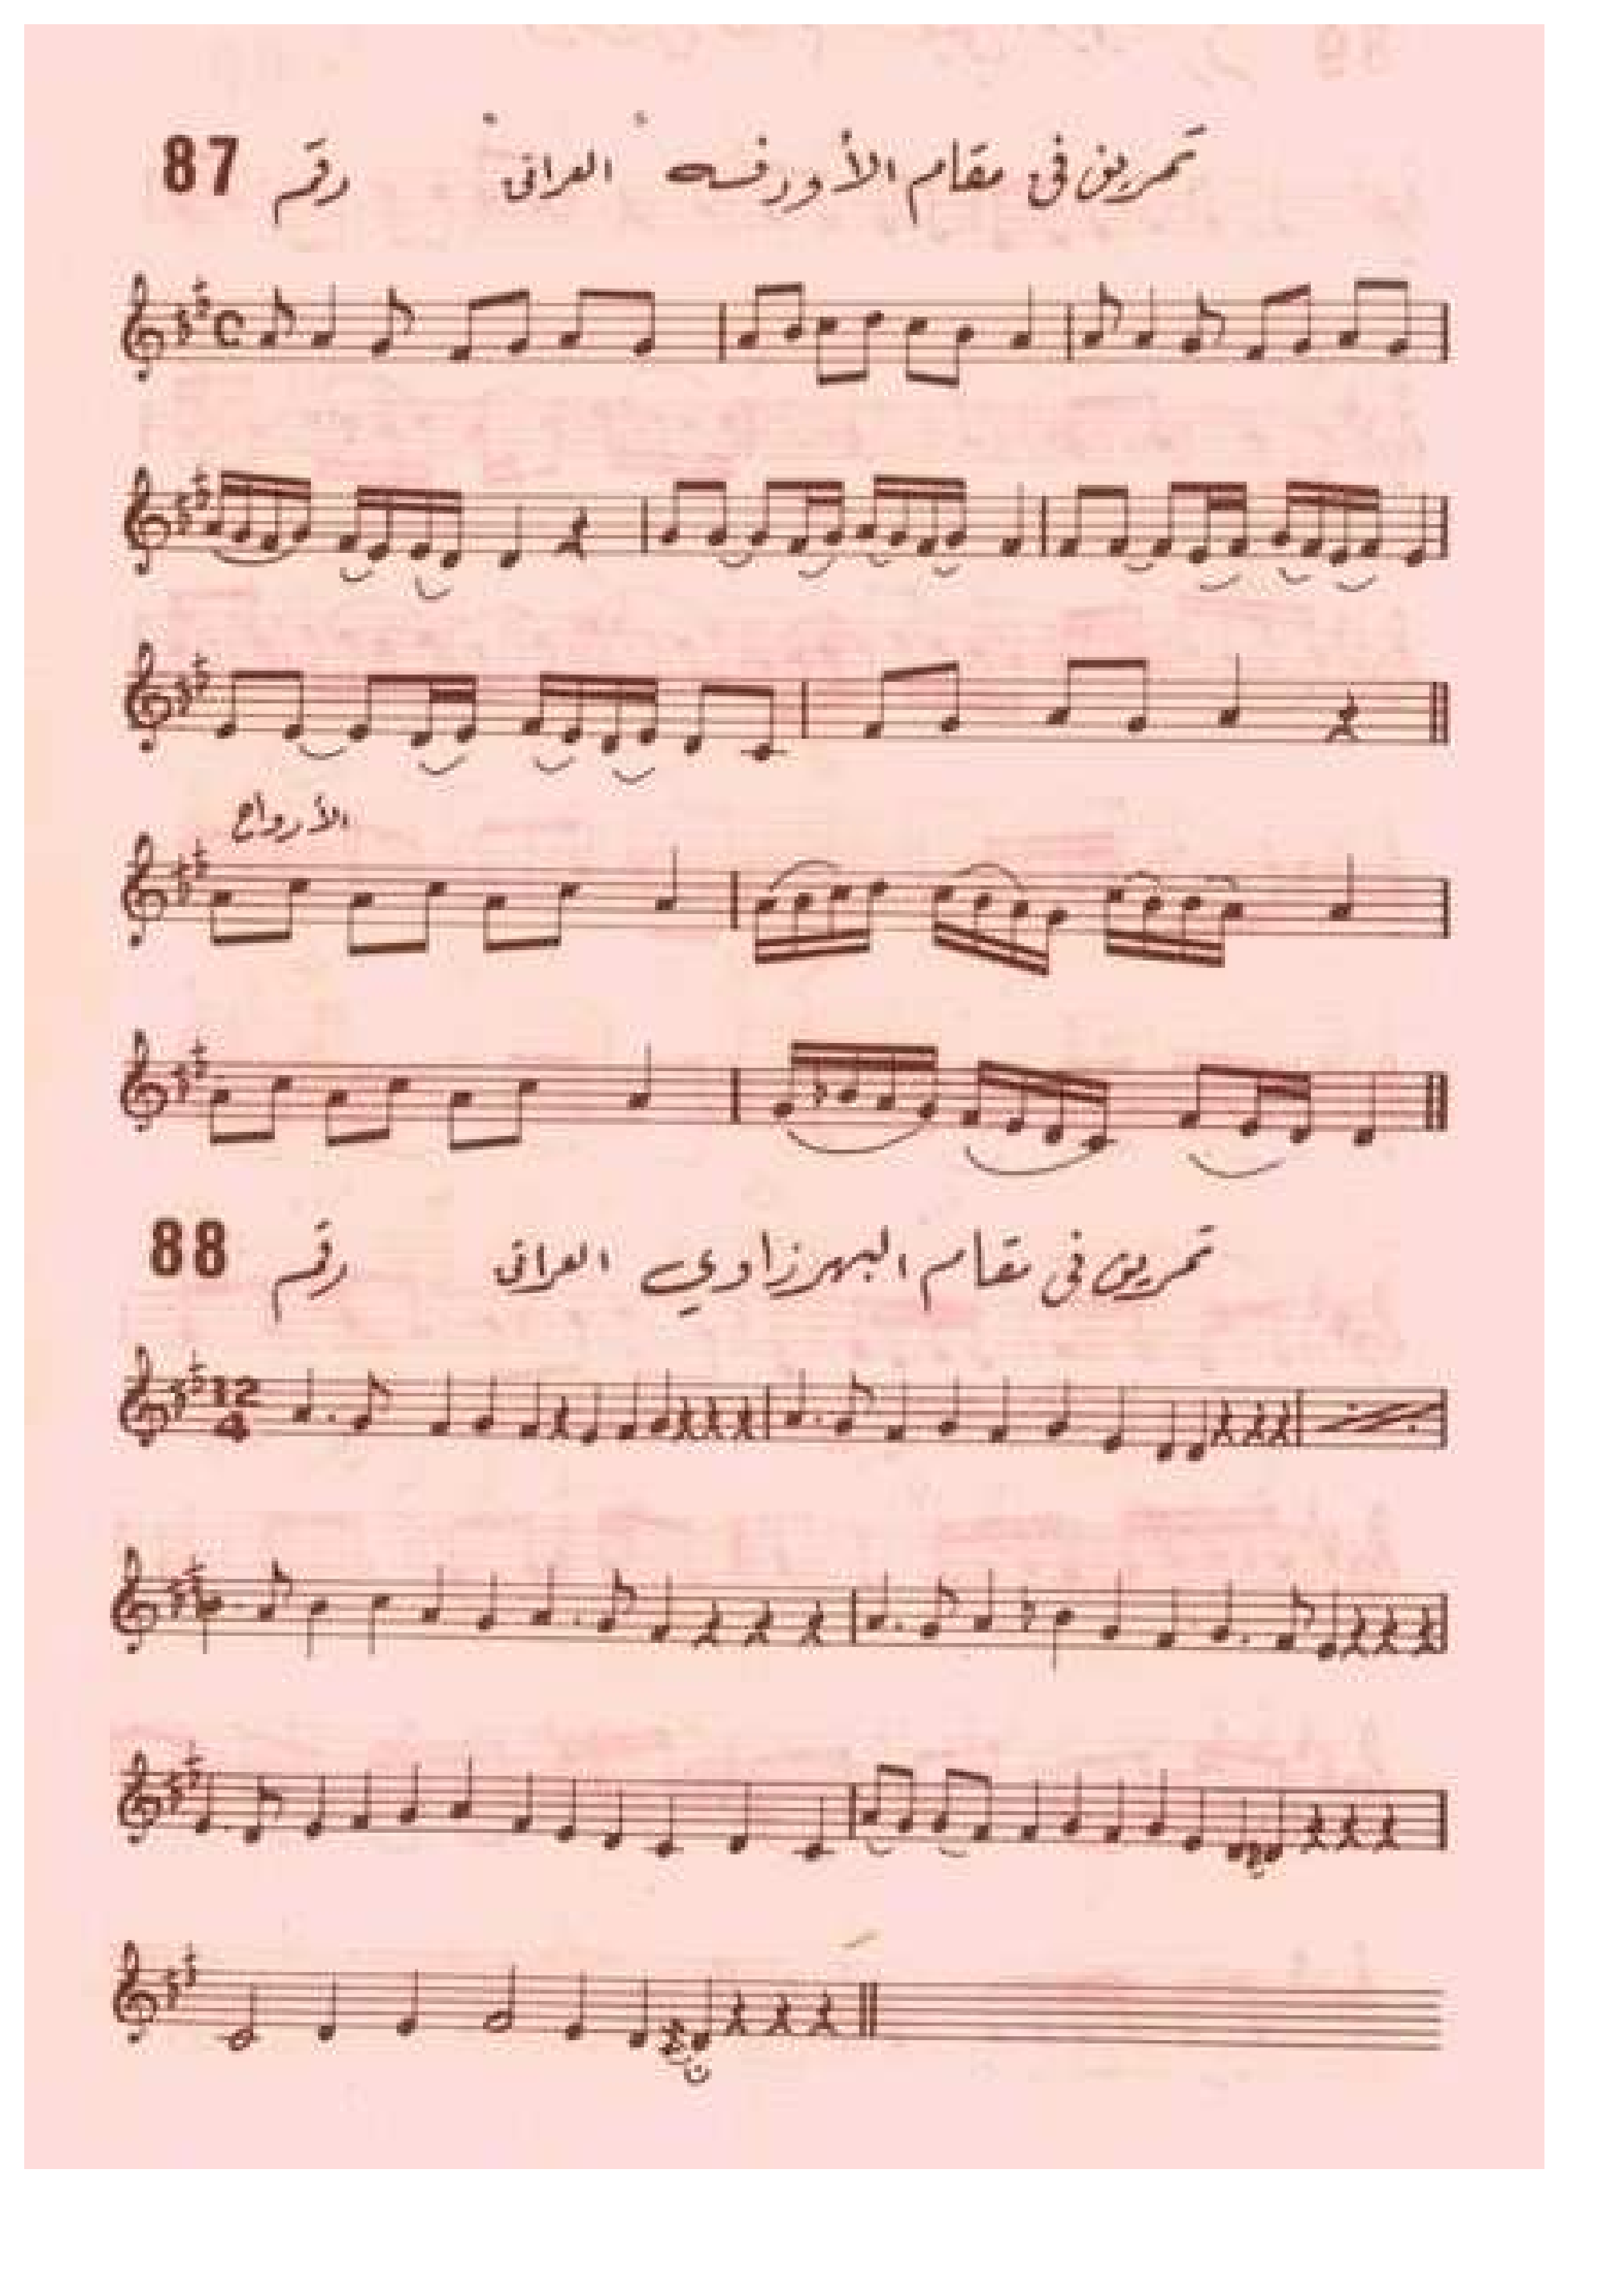 تمرين في مقام الأورفه "العراق" رقم 87
الأرواح
تمرين في مقام البهرزاوي العراق رقم 88
12
4